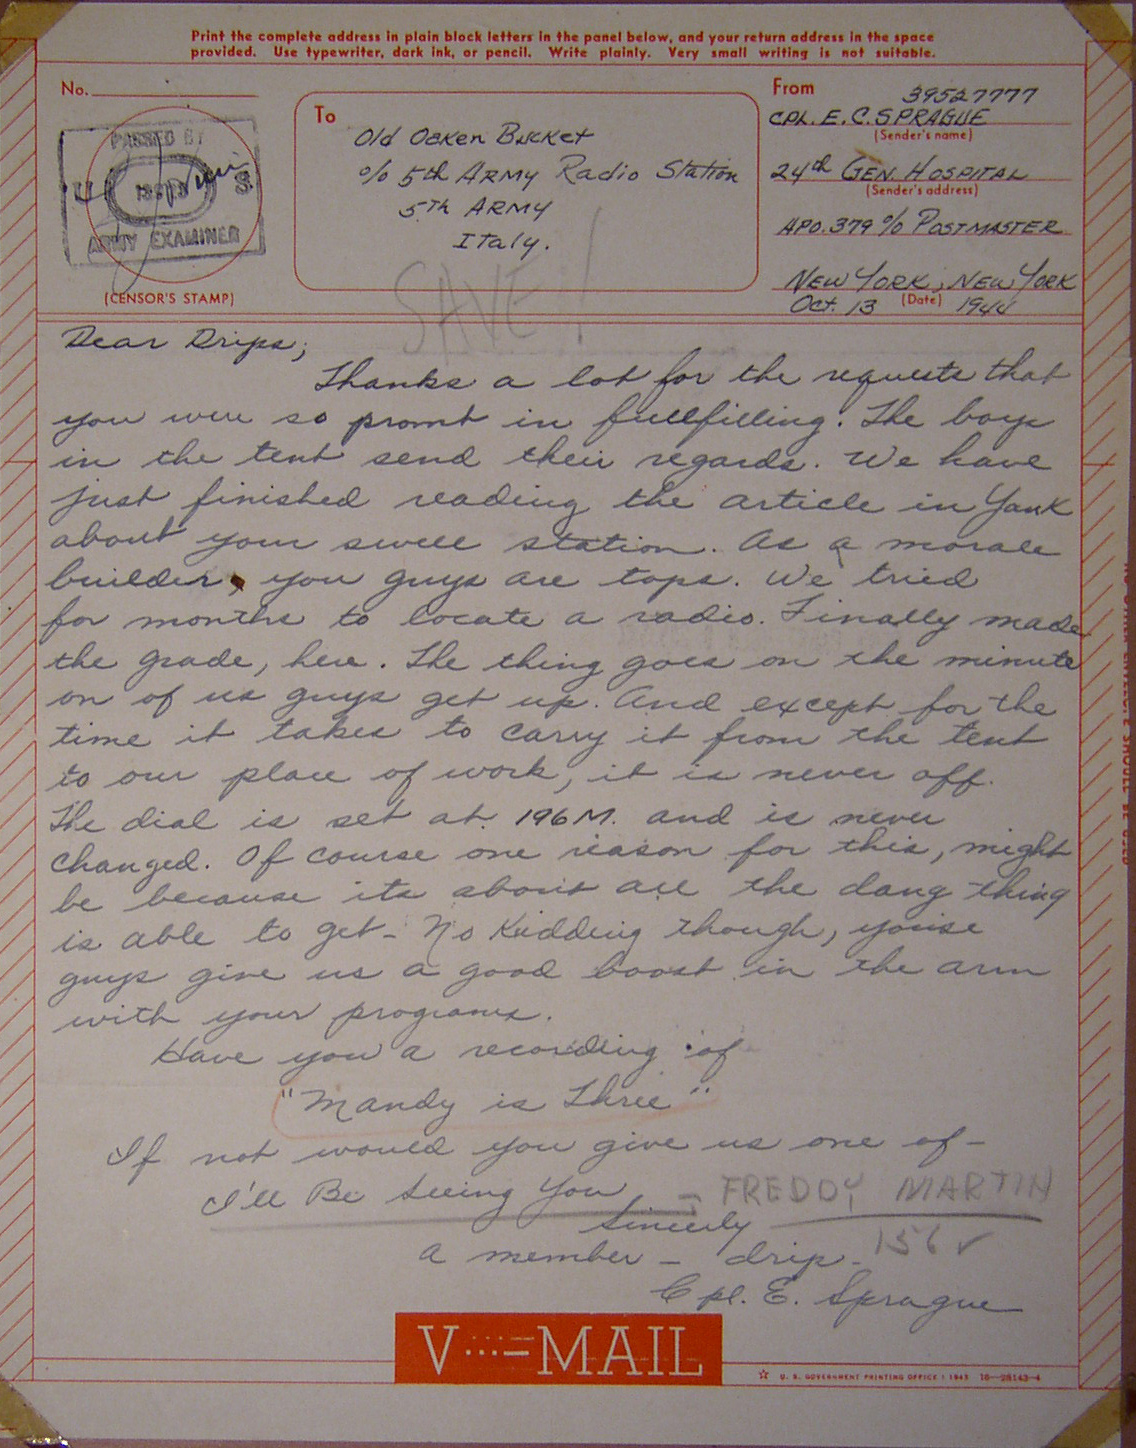 Print the complete address in plain block letters in the panel below, and your return address in the space
provided. Use typewriter, dark ink, or pencil. Write plainly. Very small writing is not suitable.
No.
To
From
39527777
CPL. E. C. SPRAGUE
(Sender's name)
24th GEN. HOSPITAL
(Sender's address)
APO. 379 % POSTMASTER
NEW YORK, NEW YORK
Oct. 13 (Date) 1944
Old Oaken Bucket
% 5th ARMY Radio Station
5TH ARMY
Italy.
PASSED BY
U S.
ARMY EXAMINER
(CENSOR'S STAMP)
SAVE!
Dear Drips;
Thanks a lot for the requests that
you were so promt in fullfilling. The boys
in the tent send their regards. We have
just finished reading the article in Yank
about your swell station. As a morale
builder, you guys are tops. We tried
for months to locate a radio. Finally made
the grade, here. The thing goes on the minute
on of us guys get up. And except for the
time it takes to carry it from the tent
to our place of work, it is never off.
The dial is set at 196 M. and is never
changed. Of course one reason for this, might
be because its about all the dang thing
is able to get- No Kidding though, youse
guys give us a good boost in the arm
with your programs.
Have you a recording of
"Mandy is Three"
If not would you give us one of-
I'll Be Seeing You - FREDDY MARTIN
Sincerly
156 ✓
a member - drip-
Cpl. E. Sprague
V···—MAIL
☆ U. S. GOVERNMENT PRINTING OFFICE : 1943 16—28143-4